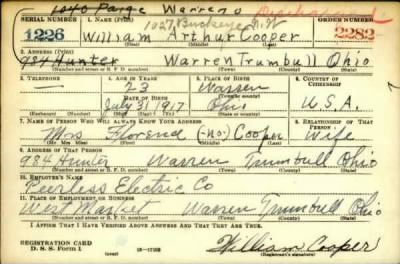 1040 Paige Warren O Discharged
SERIAL NUMBER 1. NAME (Print) ORDER NUMBER
1027 Buckeye N.W.
1226 William Arthur Cooper 2282
(First) (Middle) (Last)
2. ADDRESS (Print)
984 Hunter Warren Trumbull Ohio
(Number and street or R. F. D. number) (Town) (County) (State)
3. TELEPHONE 4. AGE IN YEARS 5. PLACE OF BIRTH 6. COUNTRY OF CITIZENSHIP
— 23 Warren
DATE OF BIRTH (Town or county)
July 31 1917 Ohio U.S.A.
(Exchange) (No.) (Mo.) (Day) (Yr.) (State or country)
7. NAME OF PERSON WHO WILL ALWAYS KNOW YOUR ADDRESS 8. RELATIONSHIP OF THAT PERSON
Mrs Florence (-no-) Cooper Wife
(Mr., Mrs., Miss) (First) (Middle) (Last)
9. ADDRESS OF THAT PERSON
984 Hunter Warren Trumbull Ohio
(Number and street or R. F. D. number) (Town) (County) (State)
10. EMPLOYER'S NAME
Peerless Electric Co
11. PLACE OF EMPLOYMENT OR BUSINESS
West Market Warren Trumbull Ohio
(Number and street or R. F. D. number) (Town) (County) (State)
I AFFIRM THAT I HAVE VERIFIED ABOVE ANSWERS AND THAT THEY ARE TRUE.
REGISTRATION CARD
D. S. S. FORM 1 William Cooper